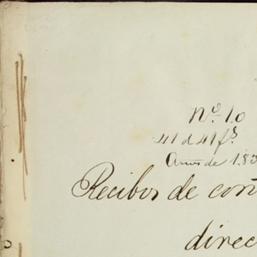 Nº 10
41 d 41 fs
Años de 185
Recibos de con
direc